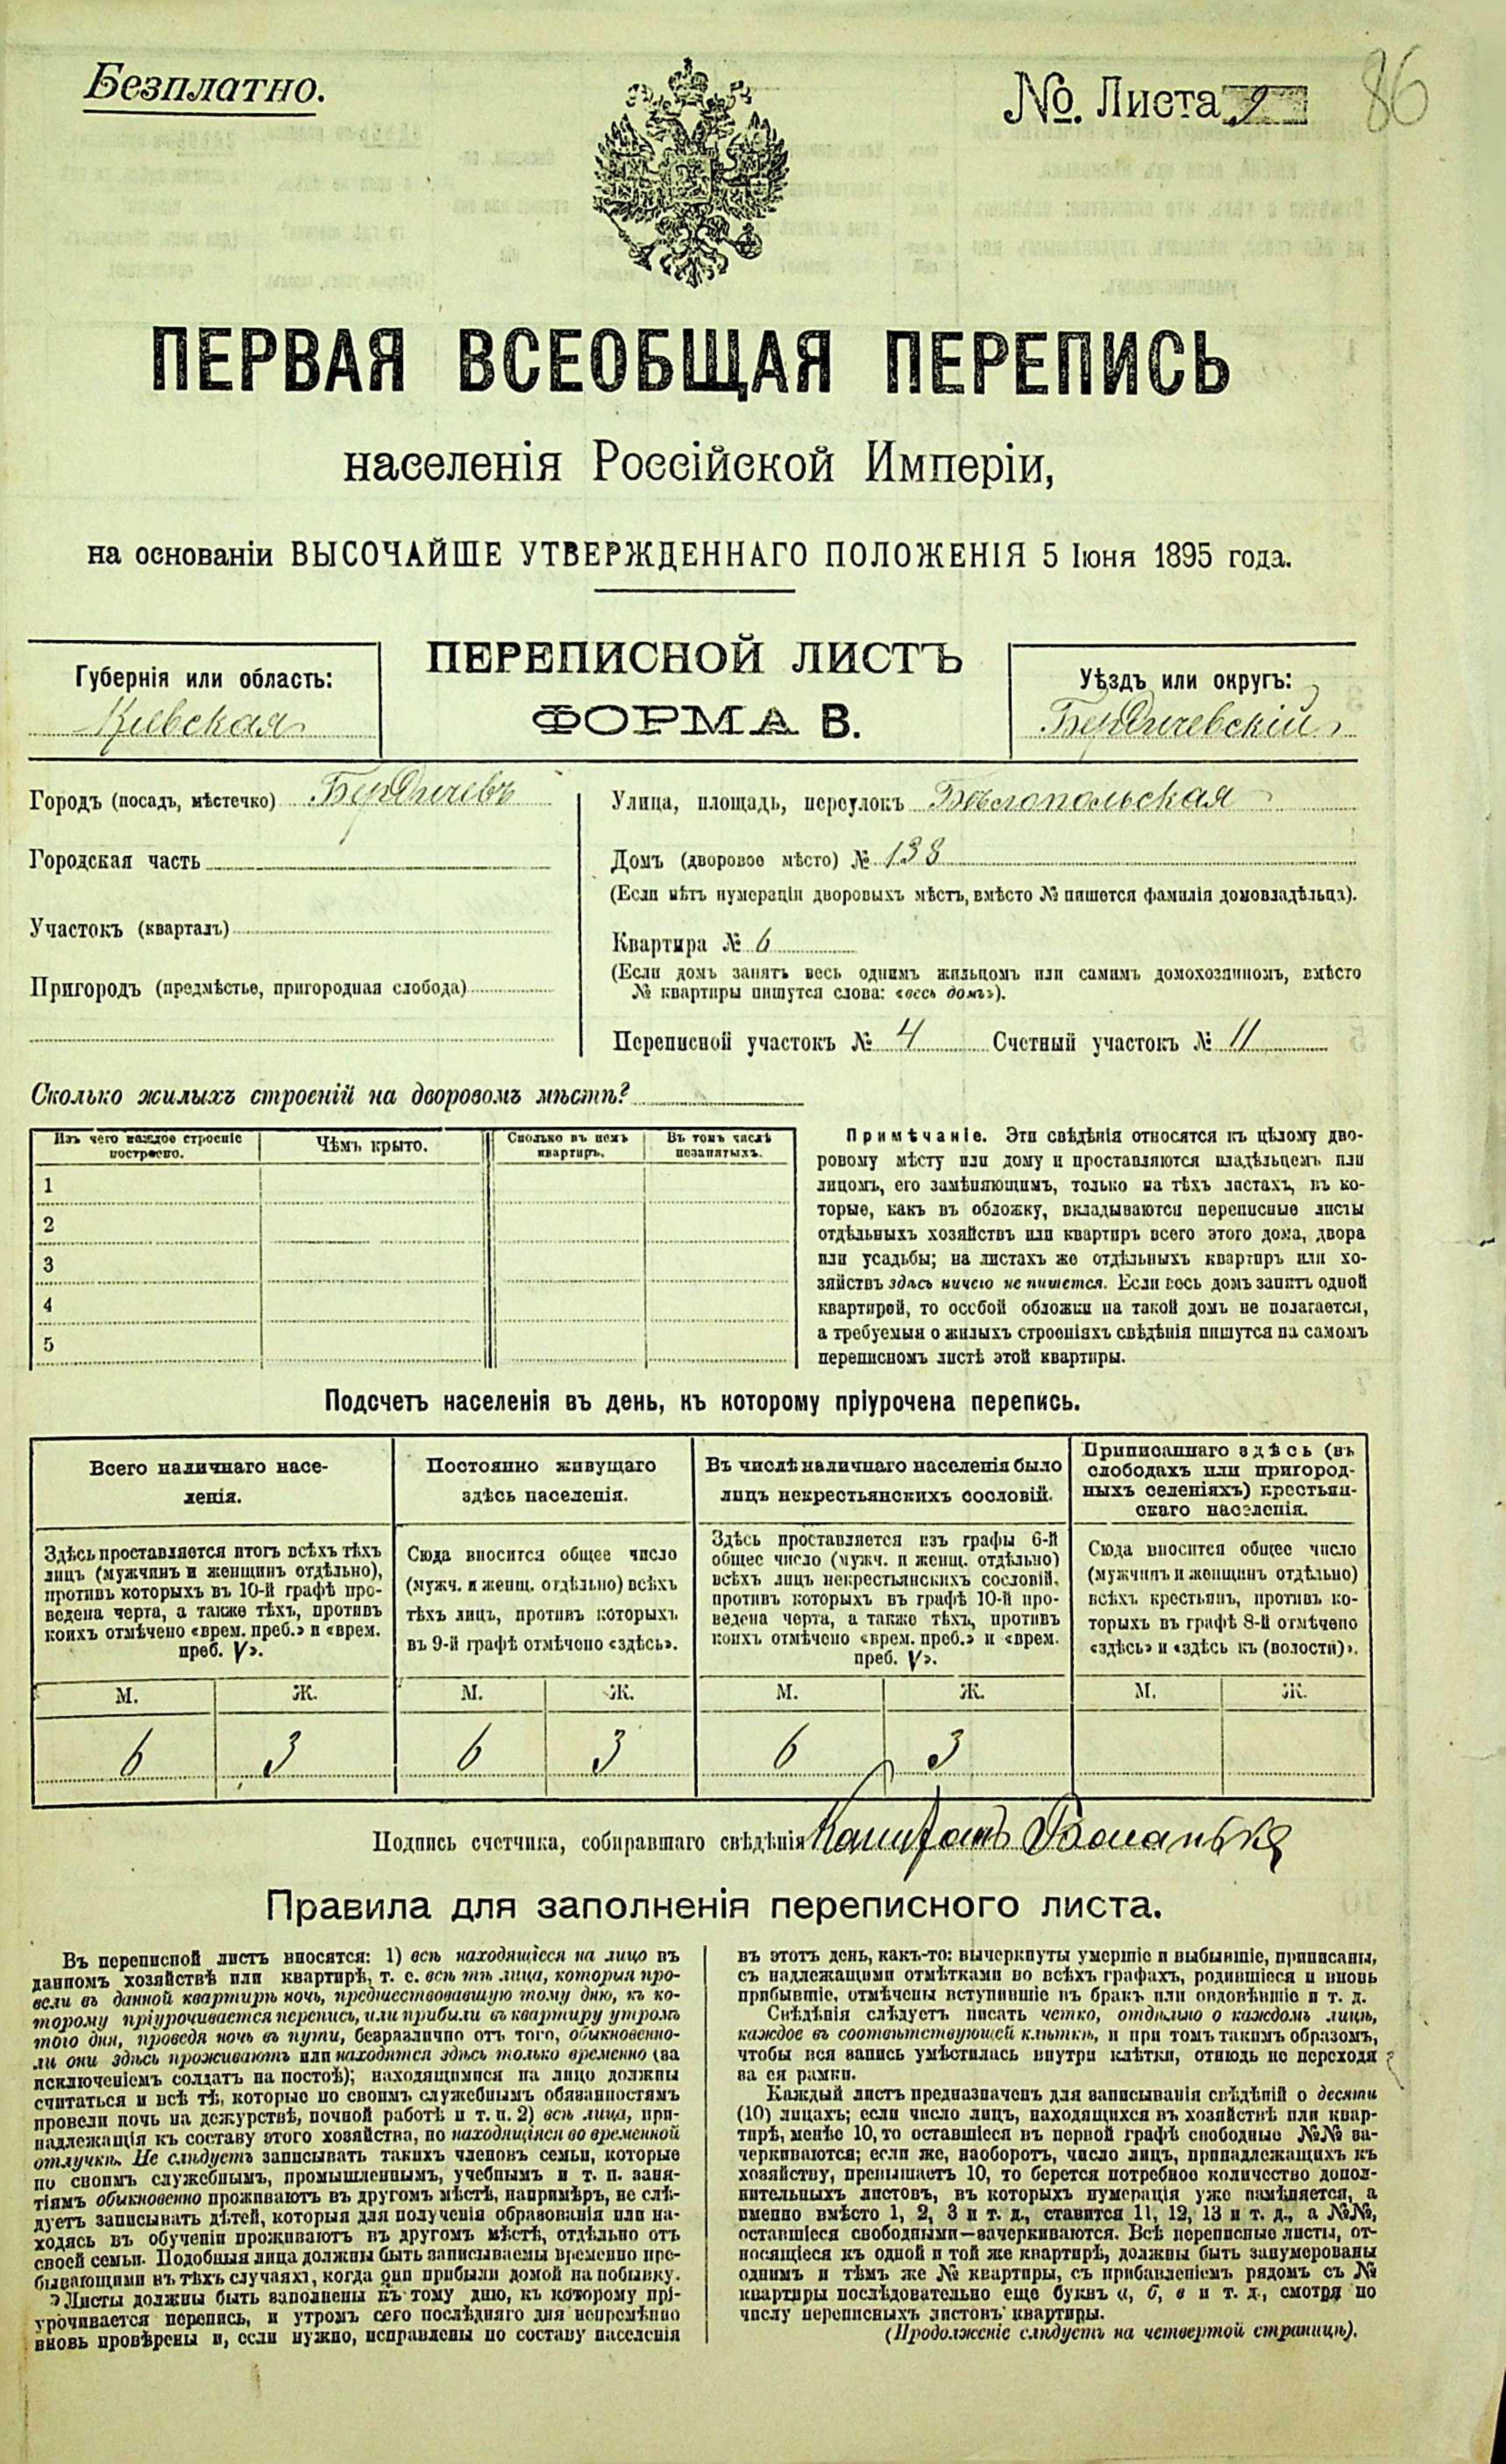 Безплатно.
№. Листа 9
86
ПЕРВАЯ ВСЕОБЩАЯ ПЕРЕПИСЬ
населенія Россійской Имперіи,
на основаніи ВЫСОЧАЙШЕ УТВЕРЖДЕННАГО ПОЛОЖЕНІЯ 5 Іюня 1895 года.
Губернія или область:
Кіевская
ПЕРЕПИСНОЙ ЛИСТЪ
ФОРМА В.
Уѣздъ или округъ:
Бердичевскій
Городъ (посадъ, мѣстечко) Бердичевъ
Городская часть
Участокъ (кварталъ)
Пригородъ (предмѣстье, пригородная слобода)
Улица, площадь, переулокъ Бѣлопольская
Домъ (дворовое мѣсто) № 138
(Если нѣтъ нумераціи дворовыхъ мѣстъ, вмѣсто № пишется фамилія домовладѣльца).
Квартира № 6
(Если домъ занятъ весь однимъ жильцомъ или самимъ домохозяиномъ, вмѣсто
№ квартиры пишутся слова: «весь домъ»).
Переписной участокъ № 4 Счетный участокъ № 11
Сколько жилыхъ строеній на дворовомъ мѣстѣ?
Изъ чего каждое строеніе
построено.
Чѣмъ крыто.
Сколько въ немъ
квартиръ.
Въ томъ числѣ
незанятыхъ.
1
2
3
4
5
Примѣчаніе. Эти свѣдѣнія относятся къ цѣлому дво-
ровому мѣсту или дому и проставляются владѣльцемъ или
лицомъ, его замѣняющимъ, только на тѣхъ листахъ, въ ко-
торые, какъ въ обложку, вкладываются переписные листы
отдѣльныхъ хозяйствъ или квартиръ всего этого дома, двора
или усадьбы; на листахъ же отдѣльныхъ квартиръ или хо-
зяйствъ здѣсь ничего не пишется. Если весь домъ занятъ одной
квартирой, то особой обложки на такой домъ не полагается,
а требуемыя о жилыхъ строеніяхъ свѣдѣнія пишутся на самомъ
переписномъ листѣ этой квартиры.
Подсчетъ населенія въ день, къ которому пріурочена перепись.
Всего наличнаго насе-
ленія.
Здѣсь проставляется итогъ всѣхъ тѣхъ
лицъ (мужчинъ и женщинъ отдѣльно),
противъ которыхъ въ 10-й графѣ про-
ведена черта, а также тѣхъ, противъ
коихъ отмѣчено «врем. преб.» и «врем.
преб. V».
Постоянно живущаго
здѣсь населенія.
Сюда вносится общее число
(мужч. и женщ. отдѣльно) всѣхъ
тѣхъ лицъ, противъ которыхъ
въ 9-й графѣ отмѣчено «здѣсь».
Въ числѣ наличнаго населенія было
лицъ некрестьянскихъ сословій.
Здѣсь проставляется изъ графы 6-й
общее число (мужч. и женщ. отдѣльно)
всѣхъ лицъ некрестьянскихъ сословій,
противъ которыхъ въ графѣ 10-й про-
ведена черта, а также тѣхъ, противъ
коихъ отмѣчено «врем. преб.» и «врем.
преб. V».
Приписаннаго здѣсь (въ
слободахъ или пригород-
ныхъ селеніяхъ) крестьян-
скаго населенія.
Сюда вносится общее число
(мужчинъ и женщинъ отдѣльно)
всѣхъ крестьянъ, противъ ко-
торыхъ въ графѣ 8-й отмѣчено
«здѣсь» и «здѣсь къ (волости)».
М. Ж. М. Ж. М. Ж. М. Ж.
6 3 6 3 6 3
Подпись счетчика, собиравшаго свѣдѣнія
Правила для заполненія переписного листа.
Въ переписной листъ вносятся: 1) всѣ находящіеся на лицо въ
данномъ хозяйствѣ или квартирѣ, т. е. всѣ тѣ лица, которыя про-
вели въ данной квартирѣ ночь, предшествовавшую тому дню, къ ко-
торому пріурочивается перепись, или прибыли въ квартиру утромъ
того дня, проведя ночь въ пути, безразлично отъ того, обыкновенно-
ли они здѣсь проживаютъ или находятся здѣсь только временно (за
исключеніемъ солдатъ на постоѣ); находящимися на лицо должны
считаться и всѣ тѣ, которые по своимъ служебнымъ обязанностямъ
провели ночь на дежурствѣ, ночной работѣ и т. п. 2) всѣ лица, при-
надлежащія къ составу этого хозяйства, но находящіяся во временной
отлучкѣ. Не слѣдуетъ записывать такихъ членовъ семьи, которые
по своимъ служебнымъ, промышленнымъ, учебнымъ и т. п. заня-
тіямъ обыкновенно проживаютъ въ другомъ мѣстѣ, напримѣръ, не слѣ-
дуетъ записывать дѣтей, которыя для полученія образованія или на-
ходясь въ обученіи проживаютъ въ другомъ мѣстѣ, отдѣльно отъ
своей семьи. Подобныя лица должны быть записываемы временно пре-
бывающими въ тѣхъ случаяхъ, когда они прибыли домой на побывку.
Листы должны быть заполнены къ тому дню, къ которому прі-
урочивается перепись, и утромъ сего послѣдняго дня непремѣнно
вновь провѣрены и, если нужно, исправлены по составу населенія
въ этотъ день, какъ-то: вычеркнуты умершіе и выбывшіе, приписаны,
съ надлежащими отмѣтками во всѣхъ графахъ, родившіеся и вновь
прибывшіе, отмѣчены вступившіе въ бракъ или овдовѣвшіе и т. д.
Свѣдѣнія слѣдуетъ писать четко, отдѣльно о каждомъ лицѣ,
каждое въ соотвѣтствующей клѣткѣ, и при томъ такимъ образомъ,
чтобы вся запись умѣстилась внутри клѣтки, отнюдь не переходя
за ея рамки.
Каждый листъ предназначенъ для записыванія свѣдѣній о десяти
(10) лицахъ; если число лицъ, находящихся въ хозяйствѣ или квар-
тирѣ, менѣе 10, то оставшіеся въ первой графѣ свободные №№ за-
черкиваются; если же, наоборотъ, число лицъ, принадлежащихъ къ
хозяйству, превышаетъ 10, то берется потребное количество допол-
нительныхъ листовъ, въ которыхъ нумерація уже измѣняется, а
именно вмѣсто 1, 2, 3 и т. д., ставится 11, 12, 13 и т. д., а №№,
оставшіеся свободными—зачеркиваются. Всѣ переписные листы, от-
носящіеся къ одной и той же квартирѣ, должны быть занумерованы
однимъ и тѣмъ же № квартиры, съ прибавленіемъ рядомъ съ №
квартиры послѣдовательно еще буквъ а, б, в и т. д., смотря по
числу переписныхъ листовъ квартиры.
(Продолженіе слѣдуетъ на четвертой страницѣ).